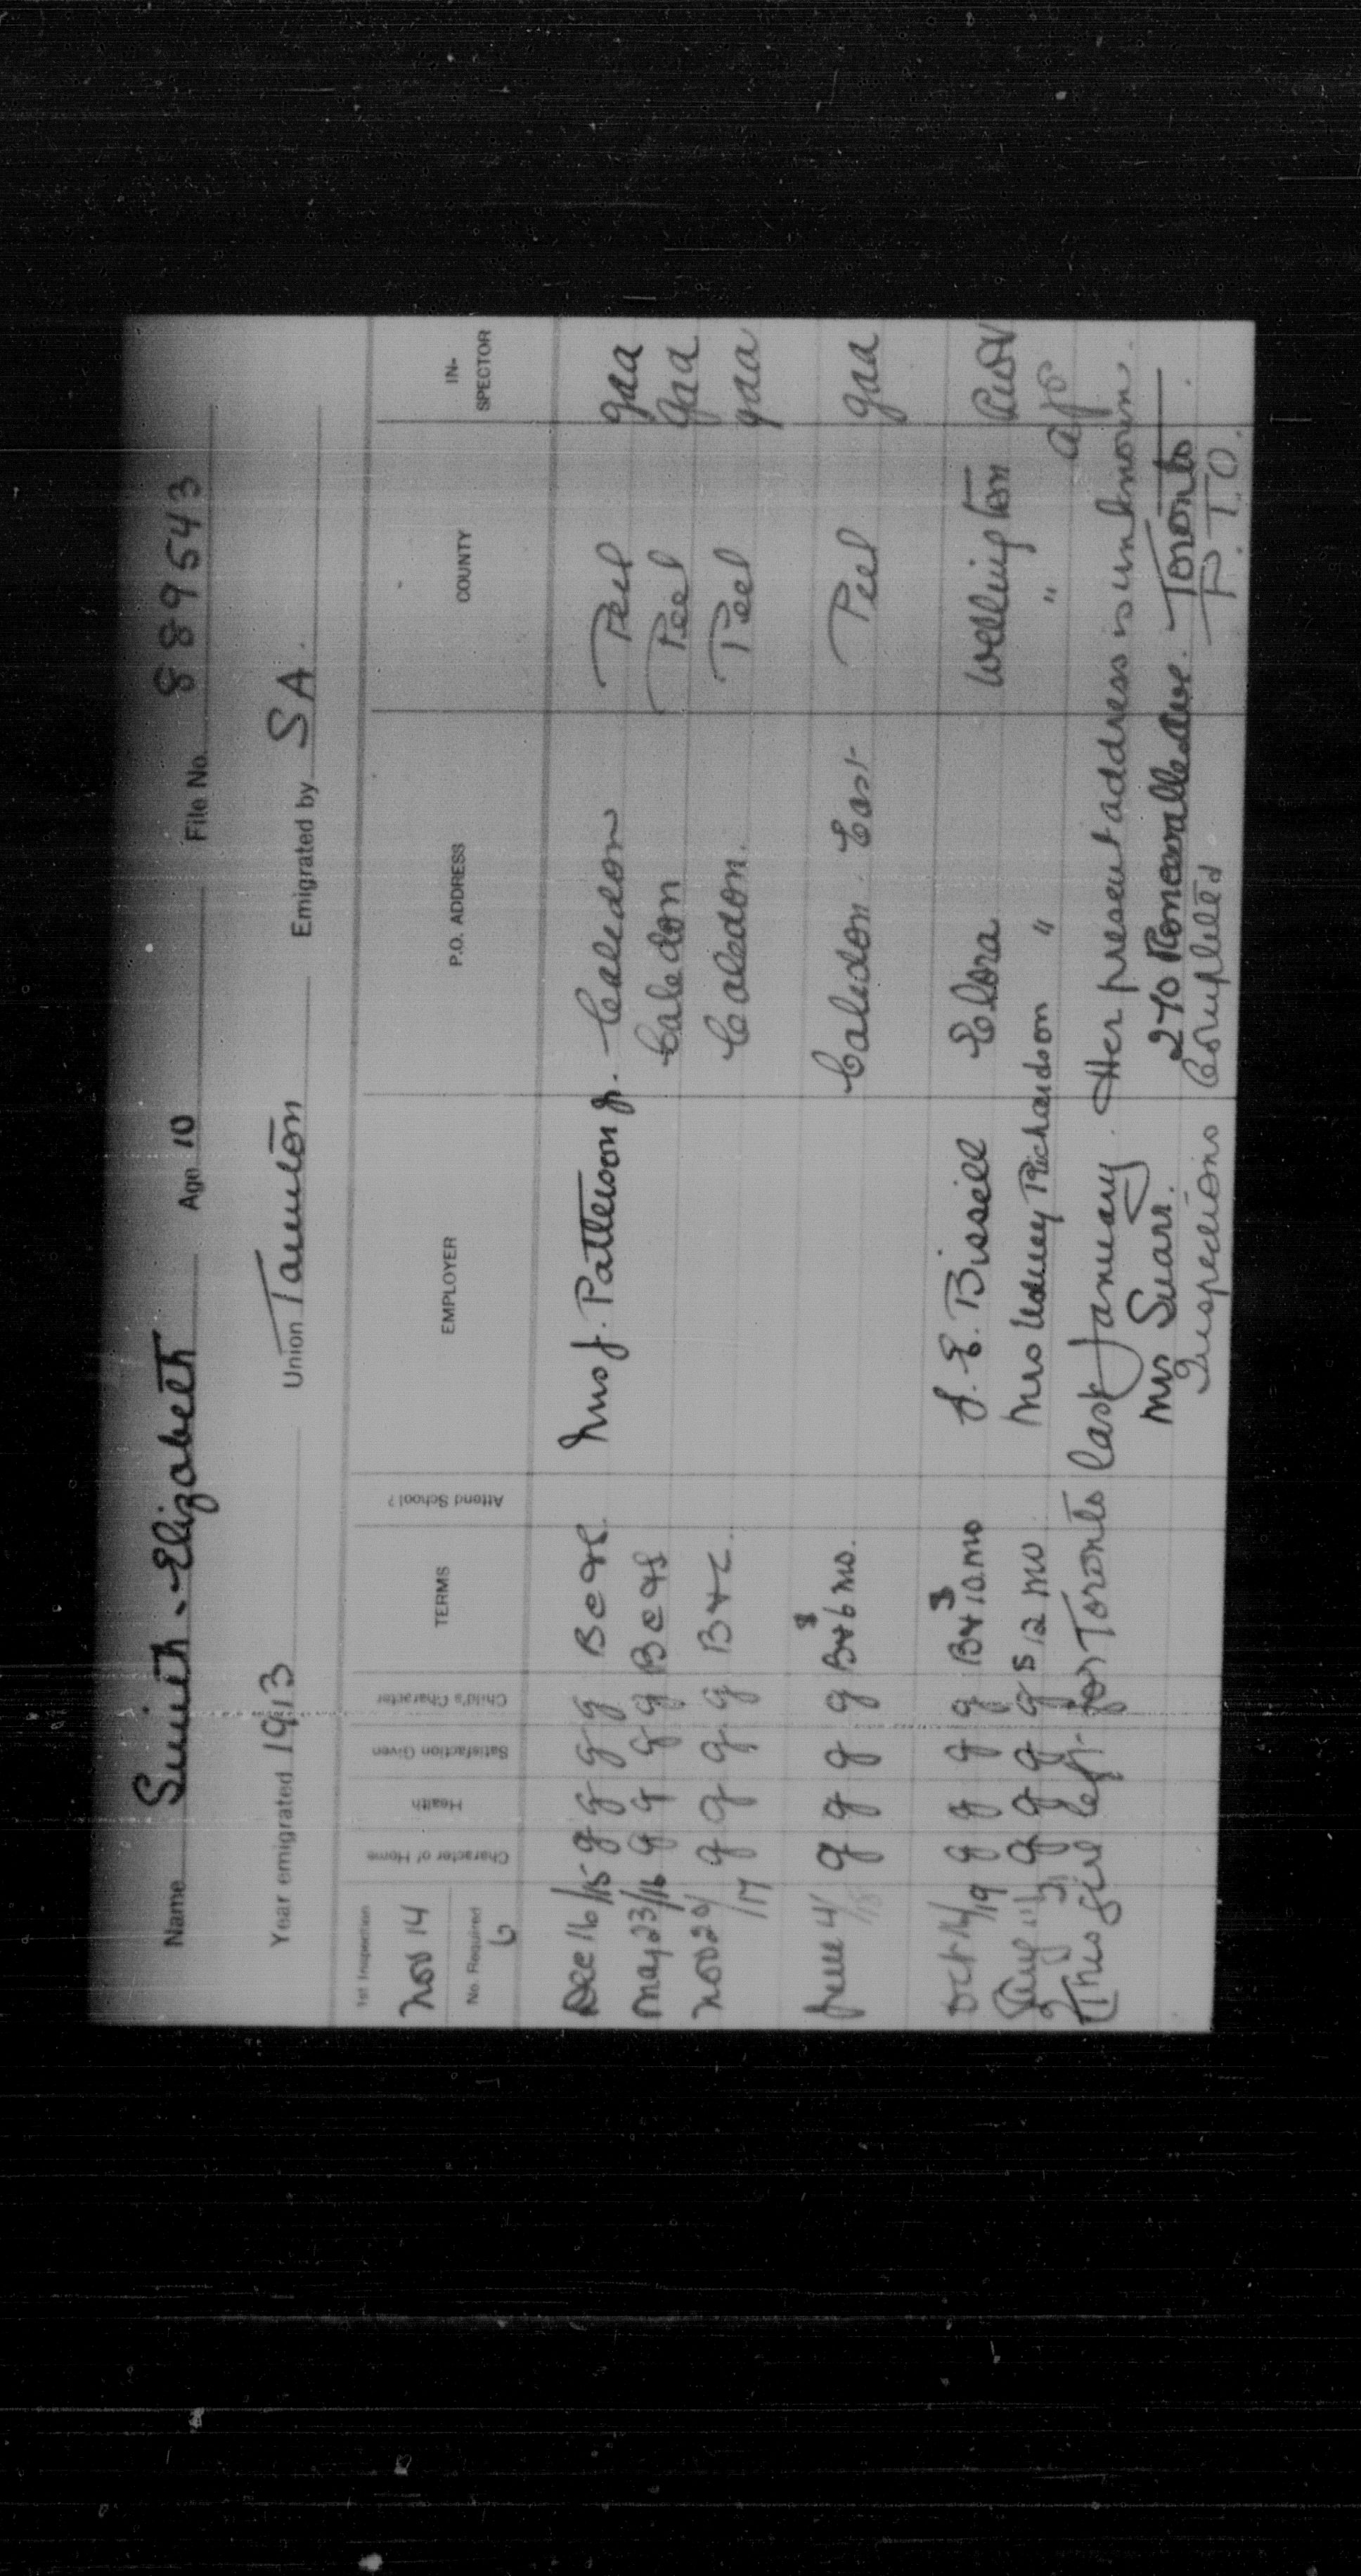 Name Smith - Elizabeth Age 10 File No. 889543
Year emigrated 1913 Union Taunton Emigrated by S A.
1st Inspection Character of Home Health Satisfaction Given Child's Character TERMS Attend School? EMPLOYER P.O. ADDRESS COUNTY IN-SPECTOR
Nov 14
No. Required
6
Dec 16/15 g g g g B C & S. Mrs J. Patterson Jr. Caledon Peel gaa
May 23/16 g g g g B C & S Caledon Peel gaa
Nov 29/17 g g g g B & C. Caledon. Peel gaa
June 4/18 g g g g B & $6 mo. Caledon East Peel gaa
Oct 14/19 g g g g B & $10 mo J. E. Bissell Elora Wellington
Aug g g g g $12 mo Mrs Udney Richardson " "
This girl left for Toronto last January. Her present address is unknown.
Mrs 270 Roncesvalles Ave. Toronto
Inspections Completed P.T.O.